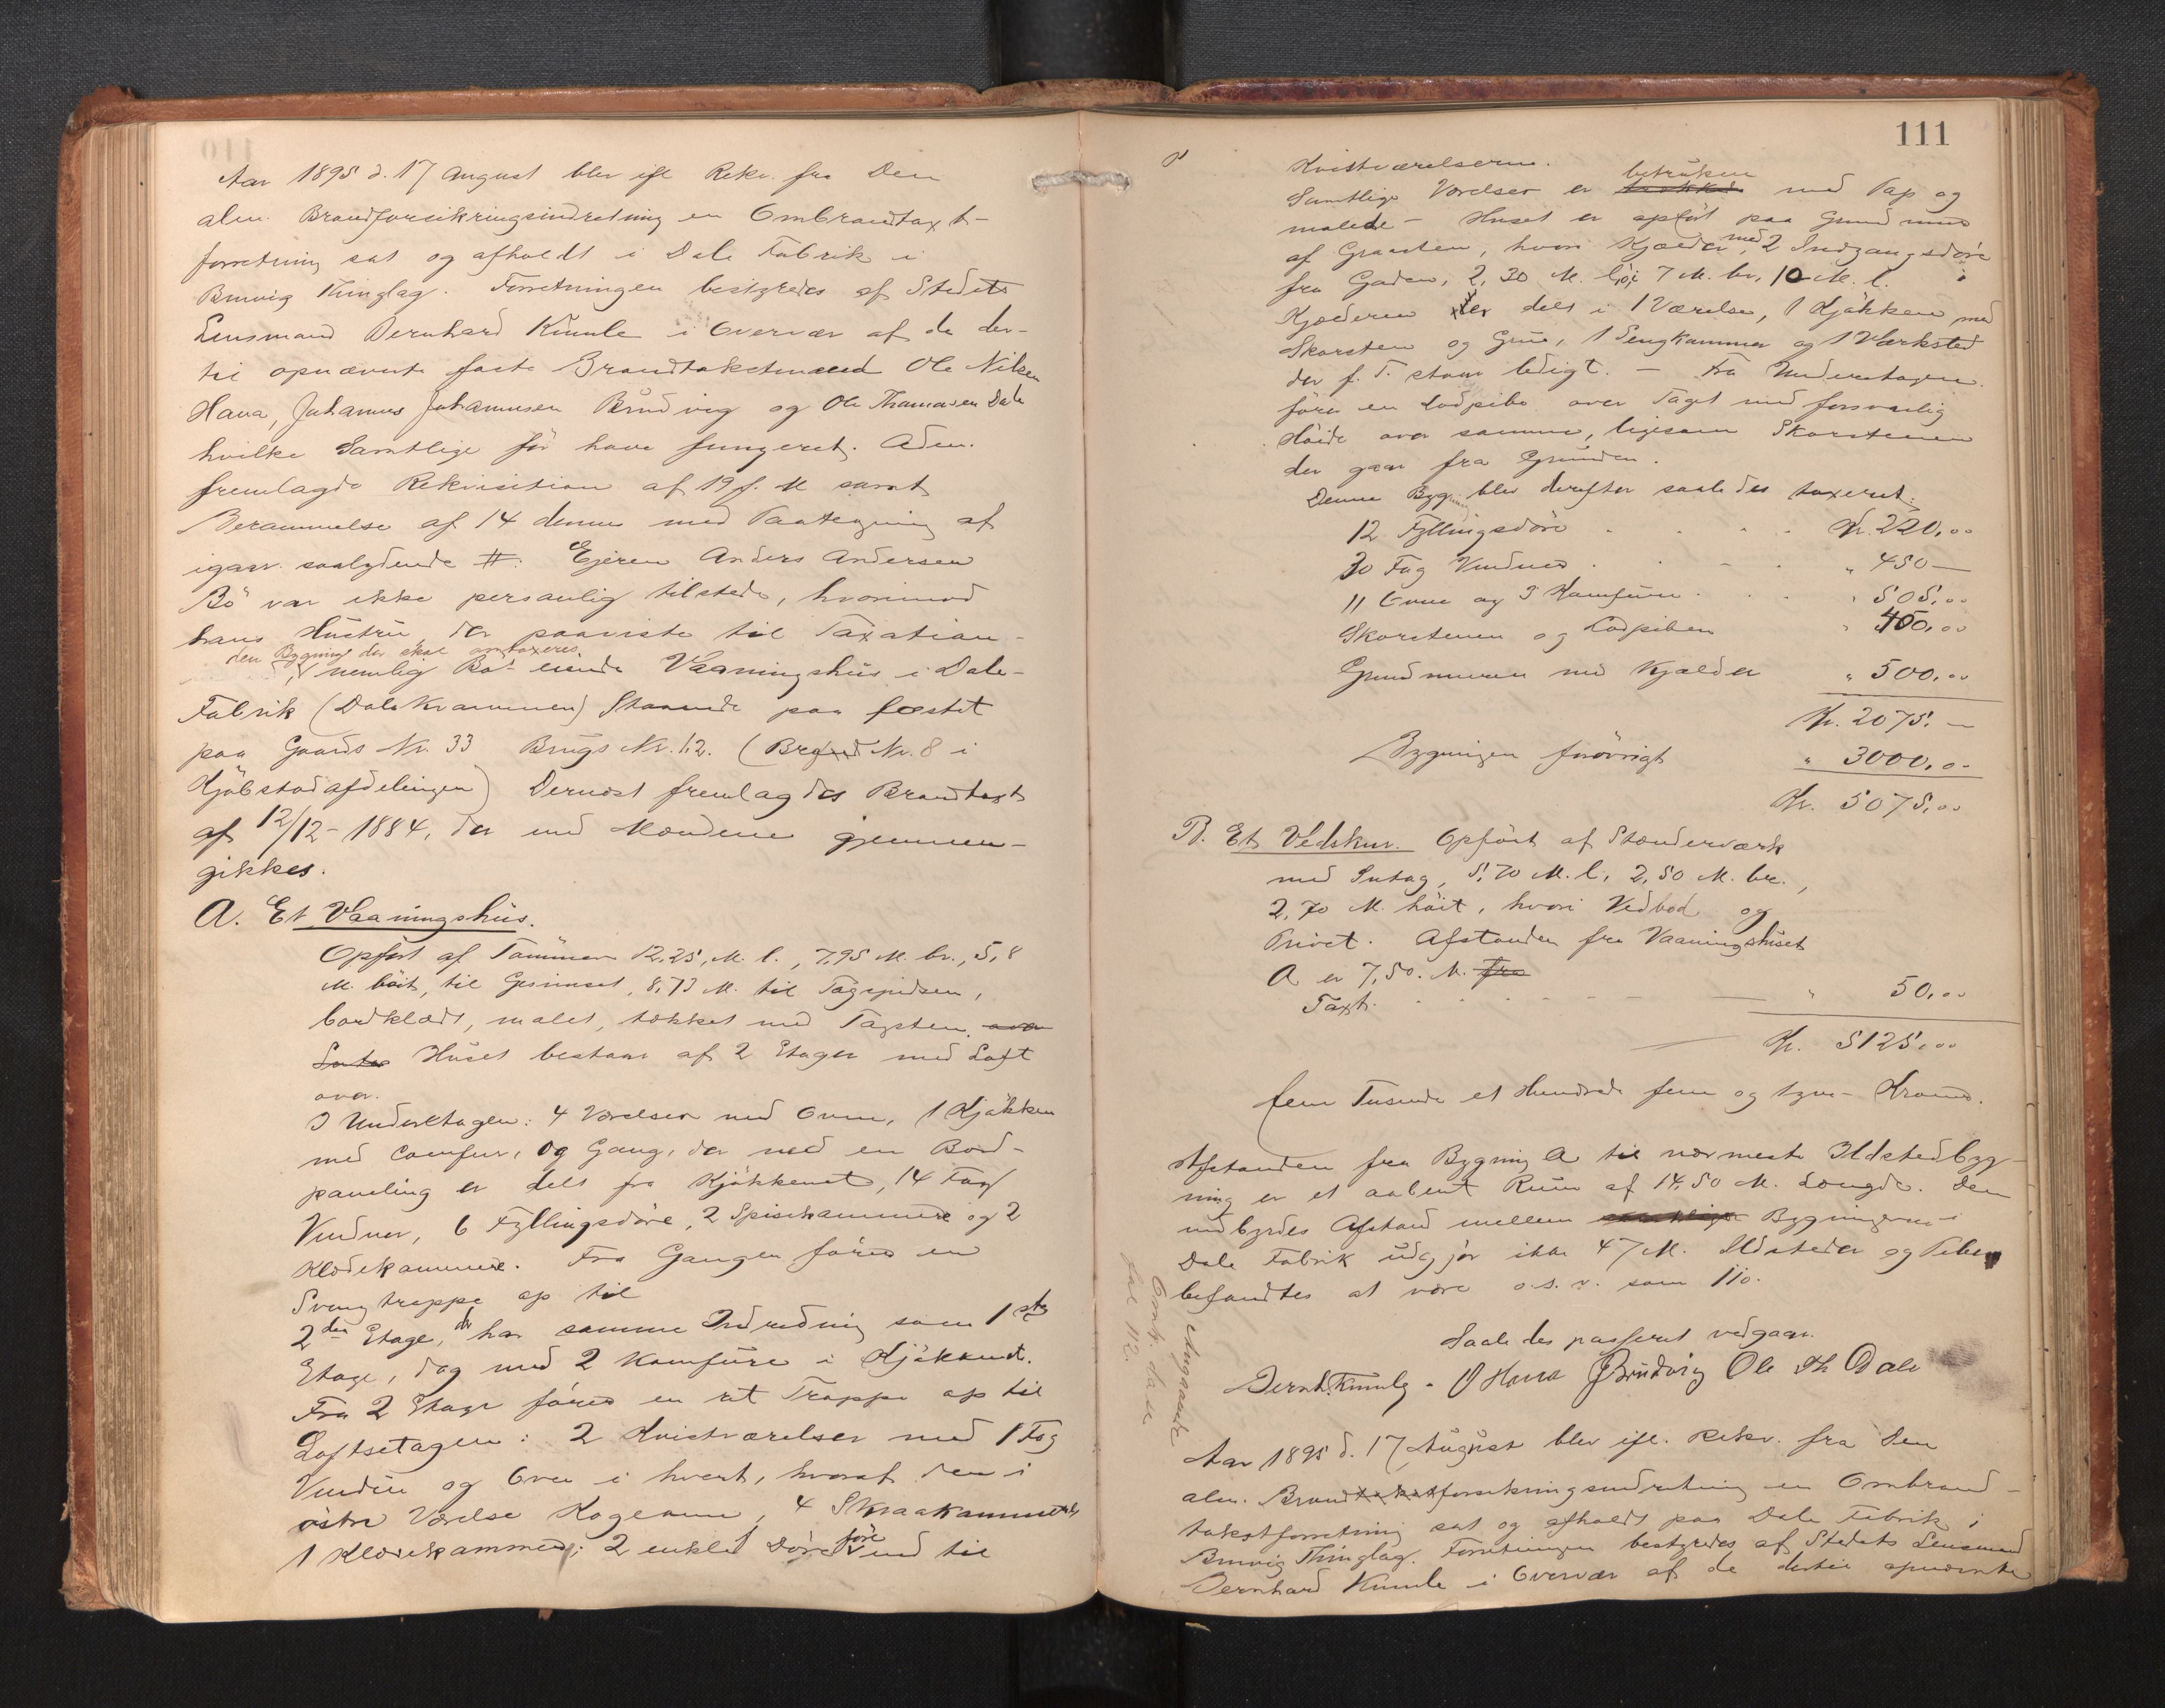 Aar 1895 d. 17 August blev ifl Rekv. fra Den
alm. Brandforsikringsindretning en Ombrandtaxt-
forretning sat og afholdt i Dale Fabrik i
Bruvig Thinglag. Forretningen bestyredes af Stedets
Lensmand Bernhard Kumle i Overvær af de der-
til opnævnte faste Brandtakstmænd Ole Nilsen
Hana, Johannes Johannesen Brudvig og Ole Thomasen Dale
hvilke Samtlige før have fungeret. Adm.
fremlagde Rekvisition af 19 f. M samt
Berammelse af 14 denne med Paategning af
igaar saalydende #. Ejeren Anders Andersen
Bö var ikke personlig tilstede, hvorimod
hans Hustru, der paaviste til Taxation
den Bygning der skal omtaxeres
nemlig Bö's eiende Vaaningshus i Dale
Fabrik (Dale Krammen) Staaende paa fæstet
paa Gaards Nr. 33 Brugs Nr. 12. (Brand Nr. 8 i
Kjöbstadafdelingen) Dernæst fremlagdes Brandtaxt
af 12/12-1884, der med Mændene gjennem-
gikkes.
A. Et Vaaningshus.
Opført af Tømmer 12,25, M. l., 7,95 M. br., 5,8
M. höit, til Gesimset, 8,73 M. til Tagspidsen,
bordklædt, malet, tækket med Tagsten. over
Huset bestaar af 2 Etager med Loft
over.
I Underetagen: 4 Værelser med Ovne, 1 Kjökken
med Comfur, og Gang, der med en Bord-
paneling er delt fra Kjökkenet, 14 Fag
Vinduer, 6 Fyllingsdöre, 2 Spiskammere og 2
Klædekammere. Fra Gangen föres en
Svingtrappe op til
2den Etage, der har samme Indredning som 1ste
Etage, dog med 2 Komfure i Kjøkkenet.
Fra 2 Etage föres en ret Trappe op til
Loftsetagen: 2 Kvistværelser med 1 Fag
Vindu og Ovn i hvert, hvoraf den i
östre Værelse Kogeovn, 4 Skraakammere,
1 Klædekammer; 2 enkle Döre före ind til
111
Kvistværelserne.
betrukken
Samtlige Værelser er med Pap og
malede - Huset er opfört paa Grundmur
af Graasten, hvori Kjælder med 2 Indgangsdöre
fra Gaden, 2,30 M. höi 7 M. br. 10 M. l.
Kjælderen er delt i 1 Værelse, 1 Kjökken med
Skorsten og Grue, 1 Sengkammer og 1 Værksted
der f. T. staar ledigt. - Fra Underetagen
förer en Lodpibe over Taget med forsvarlig
Höide over samme, ligesom Skorstenen
der gaar fra Grunden.
Denne Bygning blev derefter saaledes taxeret:
12 Fyllingsdöre . . . . Kr. 220,00
30 Fag Vinduer . . . „ 450 —
11 Ovne og 3 Komfure . . . „ 505,00
Skorstenen og Lodpiben „ 400,00
Grundmuren med Kjælder „ 500,00
Kr. 2075. —
Bygningen forövrigt „ 3000,00
Kr. 5075,00
B. Et Vedskur. Opfört af Stænderværk
med Sutag, 5,70 M. l., 2,50 M. br.,
2,70 M. höit, hvori Vedbod og
Privet. Afstanden fra Vaaningshuset
A er 7,50. M. fra
Taxt. „ 50,00
Kr. 5125,00
fem Tusinde et Hundrede fem og tyve Kroner.
Afstanden fra Bygning A til nærmeste Ildstedbyg-
ning er et aabent Rum af 14,50 M. Længde. Den
indbyrdes Afstand mellem Bygningerne i
Dale Fabrik udgjör ikke 47 M. Ildsteder og Piber
befandtes at være o. s. v. som 110.
Saaledes passeret vedgaar.
Bernh. Kumle. O Hana J Brudvig Ole Th Dale
Angaaende
Omb. da se
fol 112.
Aar 1895 d. 17 August blev ifl. Rekv. fra Den
alm. Brandforsikringsindretning en Ombrand-
takstforretning sat og afholdt paa Dale Fabrik i
Bruvig Thinglag. Forretningen bestyredes af Stedets Lensmand
Bernhard Kumle i Overvær af de dertil opnævnte